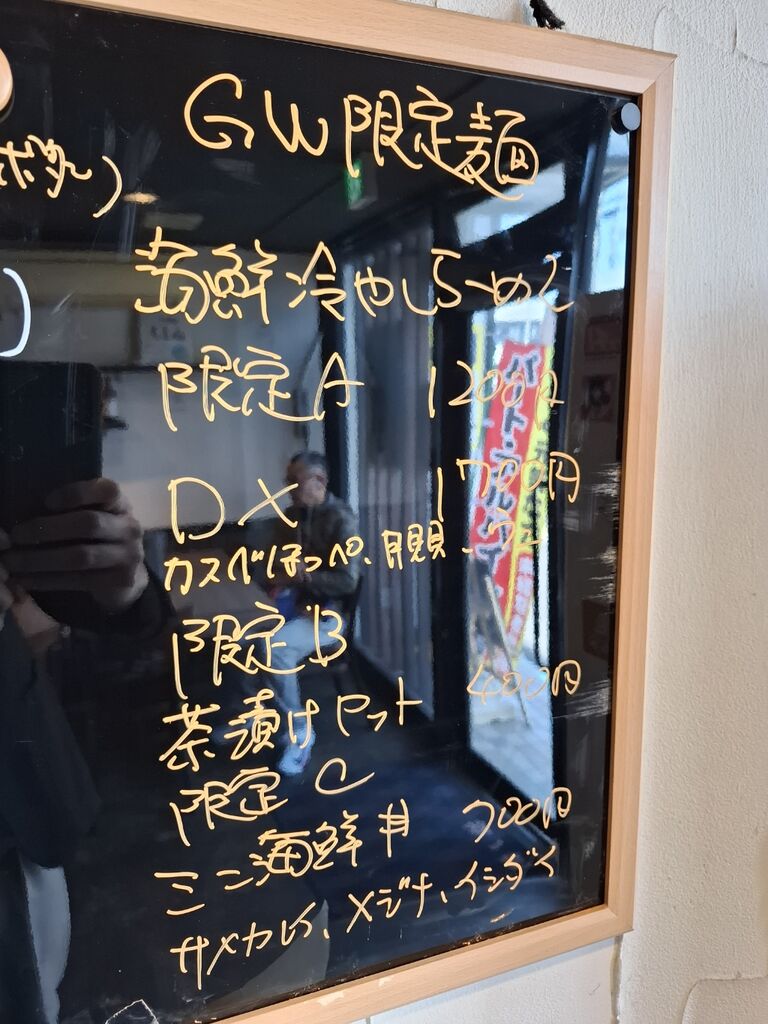 GW限定麺
海鮮冷やしらーめん
限定A 1200円
DX 1700円
カスベほっぺ、月見貝、ウニ
限定B
茶漬けセット 400円
限定C
ミニ海鮮丼 700円
サメカレイ、メジナ、イシダイ
パート・アルバイト